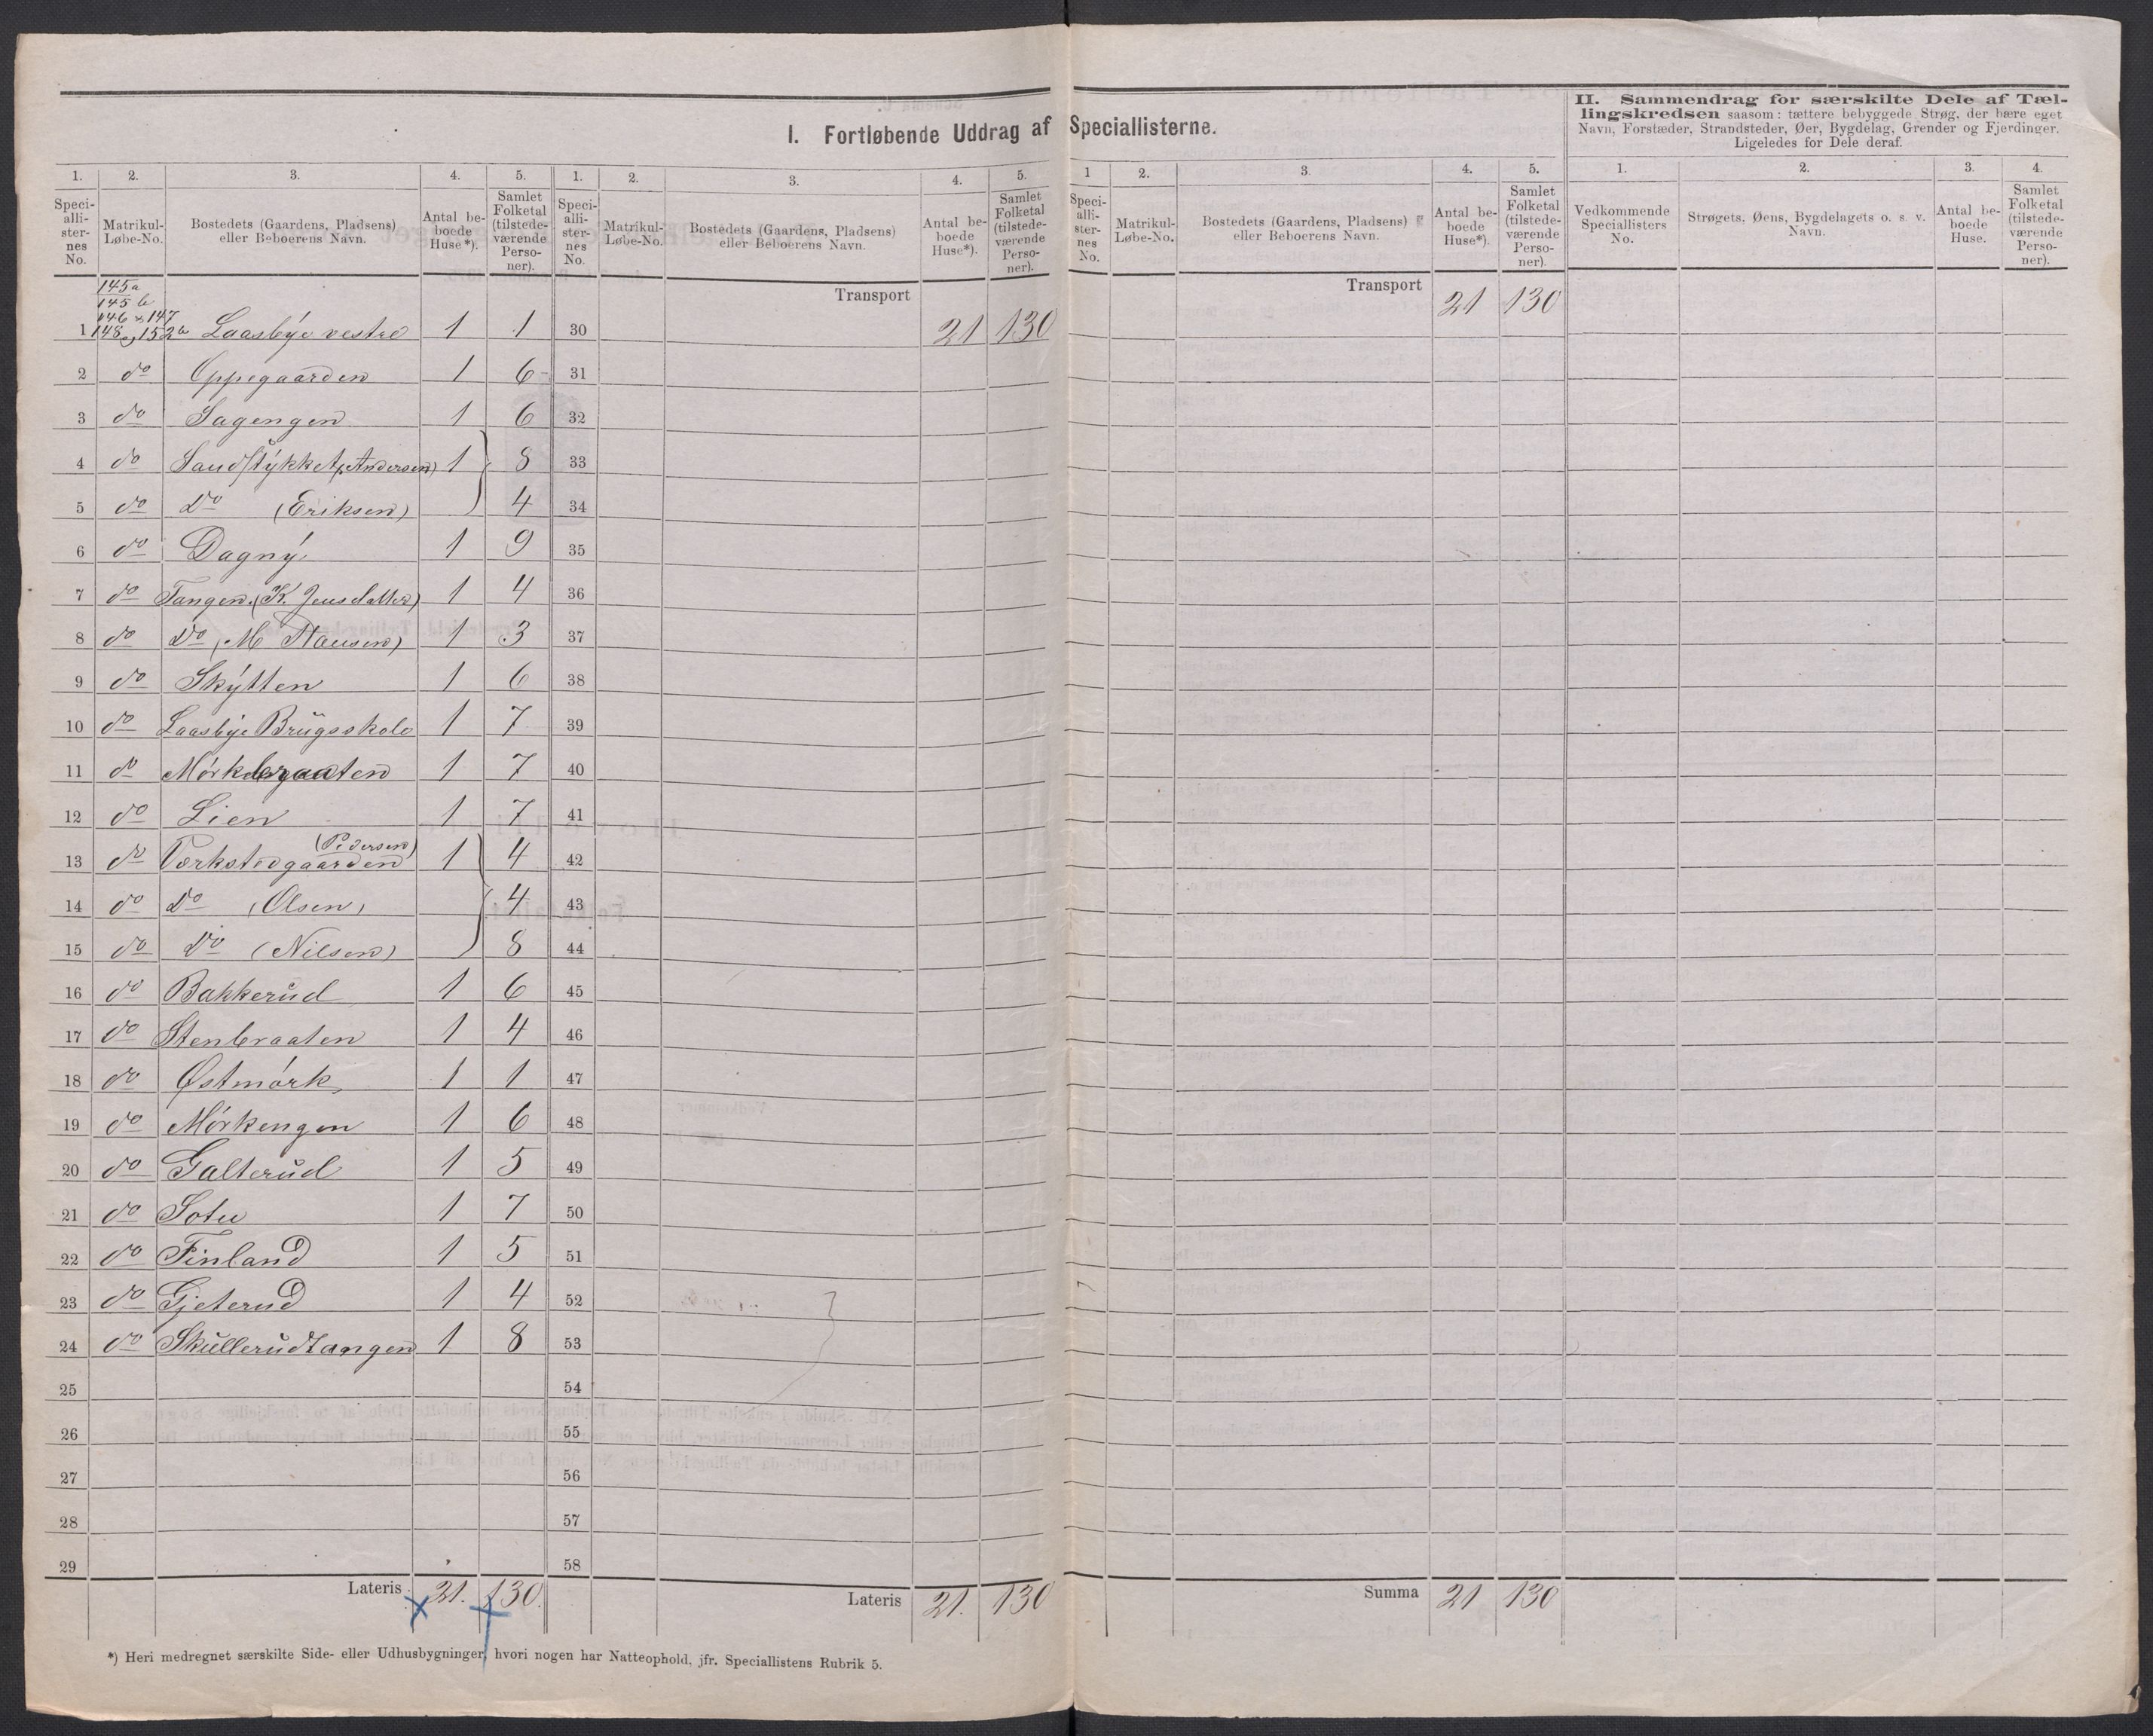 I. Fortløbende Uddrag af Speciallisterne.
II. Sammendrag for særskilte Dele af Tæl-
lingskredsen saasom: tættere bebyggede Strøg, der bære eget
Navn, Forstæder, Strandsteder, Øer, Bygdelag, Grender og Fjerdinger.
Ligeledes for Dele deraf.
1. 2. 3. 4. 5. 1. 2. 3. 4. 5. 1 2. 3. 4. 5. 1. 2. 3. 4.
Speci-alli-ster-nes No. Matrikul-Løbe-No. Bostedets (Gaardens, Pladsens) eller Beboerens Navn. Antal be-boede Huse*). Samlet Folketal (tilstede-værende Perso-ner).
Speci-alli-ster-nes No. Matrikul-Løbe-No. Bostedets (Gaardens, Pladsens) eller Beboerens Navn. Antal be-boede Huse*). Samlet Folketal (tilstede-værende Perso-ner).
Speci-alli-ster-nes No. Matrikul-Løbe-No. Bostedets (Gaardens, Pladsens) eller Beboerens Navn. Antal be-boede Huse*). Samlet Folketal (tilstede-værende Perso-ner).
Vedkommende Speciallisters No. Strøgets, Øens, Bygdelagets o. s. v. Navn. Antal be-boede Huse. Samlet Folketal (tilstede-værende Perso-ner).
145a
145b
146 & 147
Transport
Transport 21 130
1 148 og 152b Laasbye vestre 1 1 30 21 130
2 do Oppegaarden 1 6 31
3 do Sagengen 1 6 32
4 do Sandstykket (Andersen) 1 8 33
5 do Do (Eriksen) 4 34
6 do Dagny 1 9 35
7 do Tangen (K. Jensdatter) 1 4 36
8 do Do (M Hansen) 1 3 37
9 do Skytten 1 6 38
10 do Laasbye Brugsskole 1 7 39
11 do Mørkbraaten 1 7 40
12 do Lien 1 7 41
(Pedersen)
13 do Værkstedgaarden 1 4 42
14 do Do (Olsen) 4 43
15 do Do (Nilsen) 8 44
16 do Bakkerud 1 6 45
17 do Stenbraaten 1 4 46
18 do Østmørk 1 1 47
19 do Mørkengen 1 6 48
20 do Galterud 1 5 49
21 do Sotu 1 7 50
22 do Finland 1 5 51
23 do Gjeterud 1 4 52
24 do Skullerudtangen 1 8 53
25 54
26 55
27 56
28 57
29 58
Lateris 21. 130. Lateris 21. 130 Summa 21 130
*) Heri medregnet særskilte Side- eller Udhusbygninger, hvori nogen har Natteophold, jfr. Speciallistens Rubrik 5.